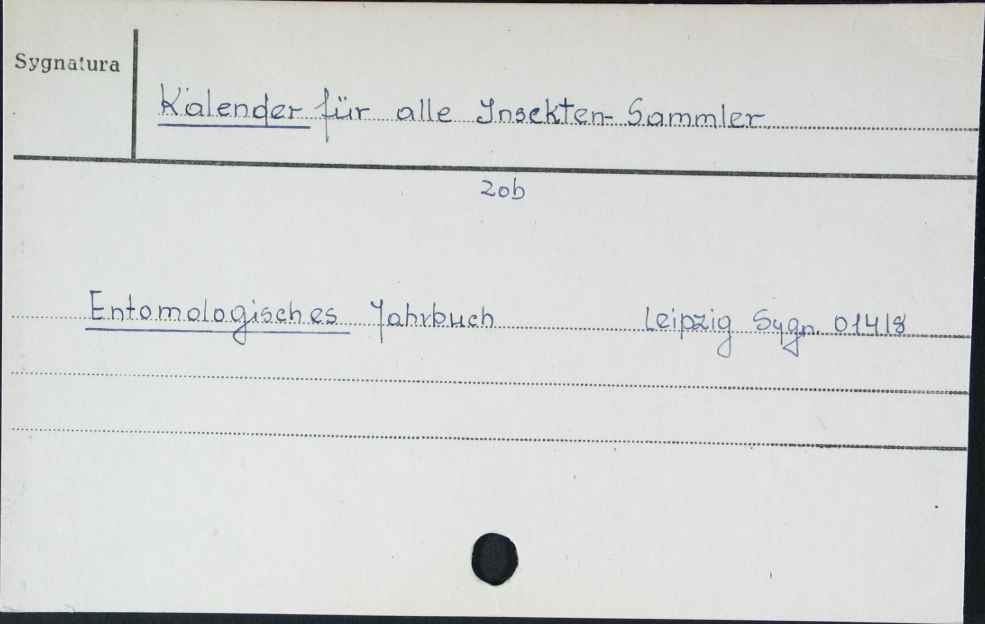 Sygnatura
Kalender für alle Insekten-Sammler
zob
Entomologisches Jahrbuch Leipzig Sygn. 01418